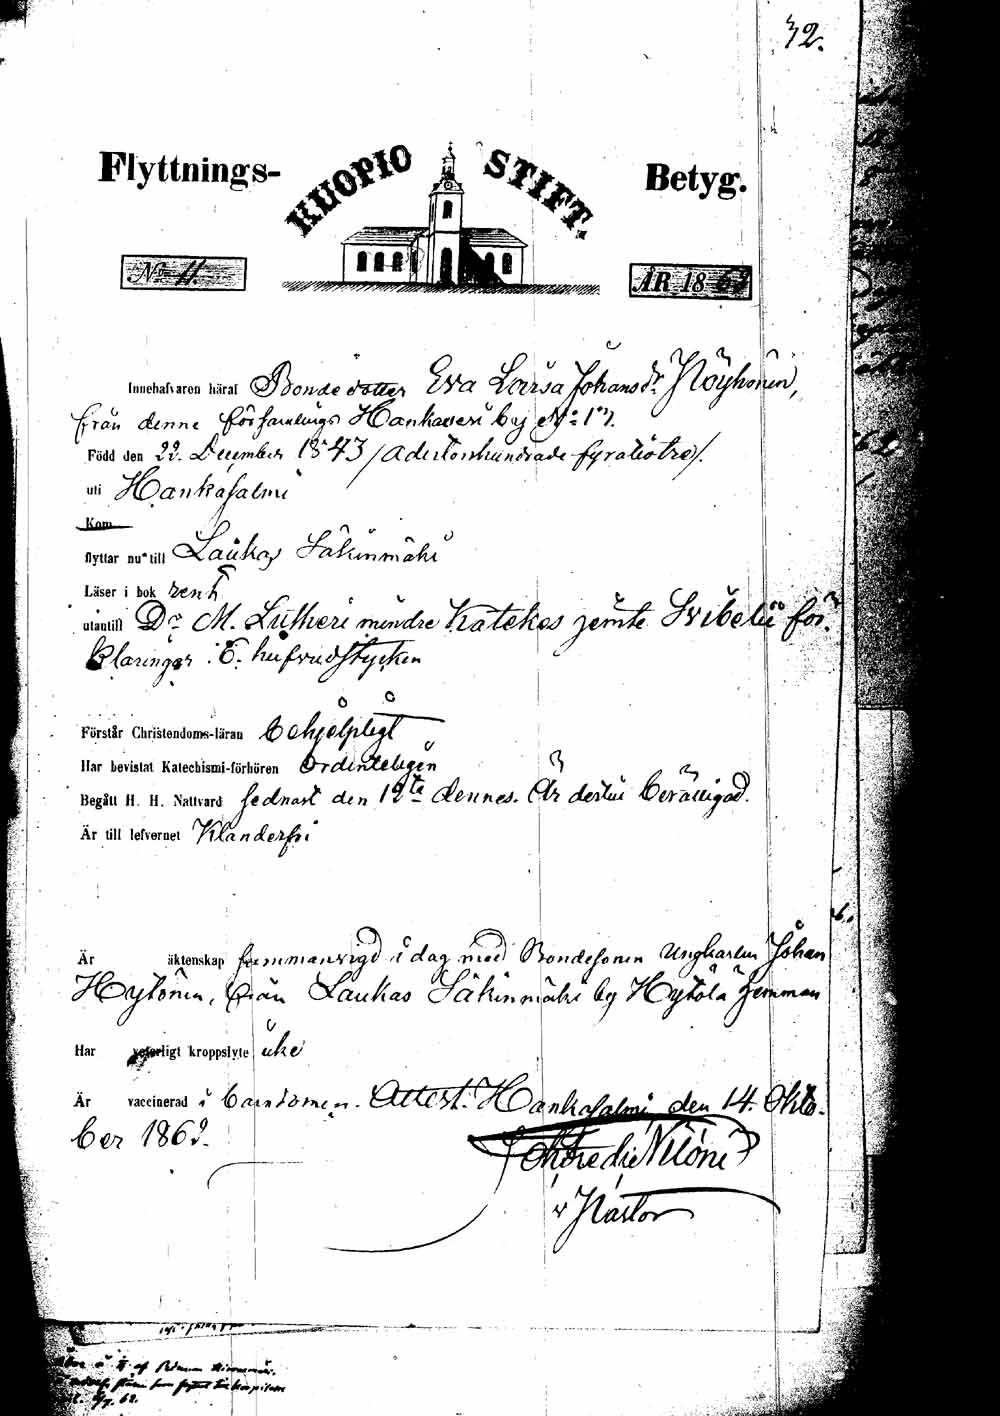 32.
Flyttnings- KUOPIO STIFT. Betyg.
No 11. ÅR 1862
Innehafvaren häraf Bondedotter Eva Lovisa Johansdr. Pöyhönen,
från denne församlings Hankaveri by No 17.
Född den 22. December 1843 /adertonhundrade fyratiotre/.
uti Hankasalmi
Kom
flyttar nu till Laukas Säkinmäki
Läser i bok rent
utantill Dr M. Lutheri mindre Katekes jemte Svibelii för
klaringar. 6. hufvudstycken
Förstår Christendoms-läran behjelpligt
Har bevistat Katechismi-förhören Ordenteligen
Begått H. H. Nattvard sednast den 12te dennes. Är dertill berättigad.
Är till lefvernet Klanderfri
Är äktenskap sammanvigd i dag med Bondesonen Ungkarlen Johan
Hytönen, från Laukas Säkinmäki by Hytölä hemman
Har kroppslyte icke
Är vaccinerad i barndomen. Attest. Hankasalmi den 14. Okto-
ber 1862.
v Pastor